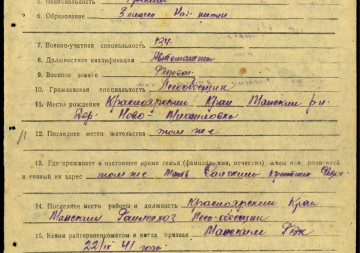 5. Национальность
6. Образование 3 класса Нач. школы
7. Военно-учетная специальность 134
8. Должностная квалификация Автоматчик
9. Военное звание Рядовой
10. Гражданская специальность Лесообъещик
11. Место рождения Красноярский Край Манский р-н
Дер. Ново-Михайловка
12. Последнее место жительства там же
13. Где проживает в настоящее время семья (фамилия, имя, отчество) жены или родителей
и точный их адрес там же Мать
14. Последнее место работы и должность Красноярский Край
Манский Лесо-объещик
15. Каким райгорвоенкоматом и когда призван Манским Рвк
22/IX 41 года